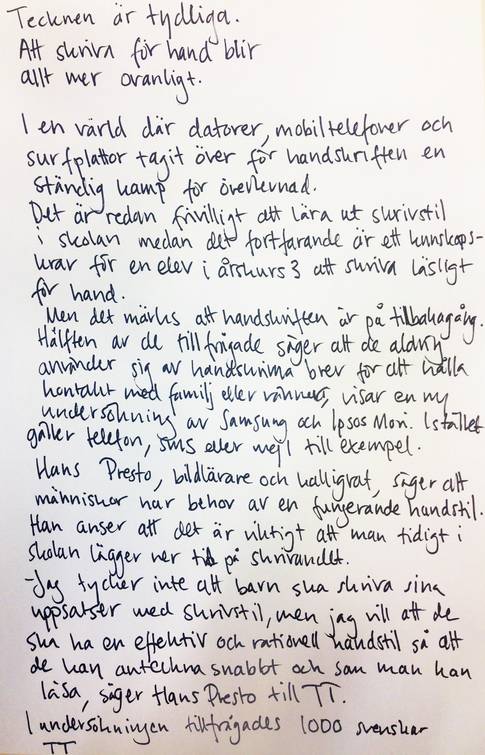 Tecknen är tydliga.
Att skriva för hand blir
allt mer ovanligt.
I en värld där datorer, mobiltelefoner och
surfplattor tagit över för handskriften en
ständig kamp för överlevnad.
Det är redan frivilligt att lära ut skrivstil
i skolan medan det fortfarande är ett kunskaps-
krav för en elev i årskurs 3 att skriva läsligt
för hand.
Men det märks att handskriften är på tillbakagång.
Hälften av de tillfrågade säger att de aldrig
använder sig av handskrivna brev för att hålla
kontakt med familj eller vänner, visar en ny
undersökning av Samsung och Ipsos Mori. Istället
gäller telefon, sms eller mejl till exempel.
Hans Presto, bildlärare och kalligraf, säger att
människor har behov av en fungerande handstil.
Han anser att det är viktigt att man tidigt i
skolan lägger ner tid på skrivandet.
-Jag tycker inte att barn ska skriva sina
uppsatser med skrivstil, men jag vill att de
ska ha en effektiv och rationell handstil så att
de kan anteckna snabbt och som man kan
läsa, säger Hans Presto till TT.
I undersökningen tillfrågades 1000 svenskar
TT